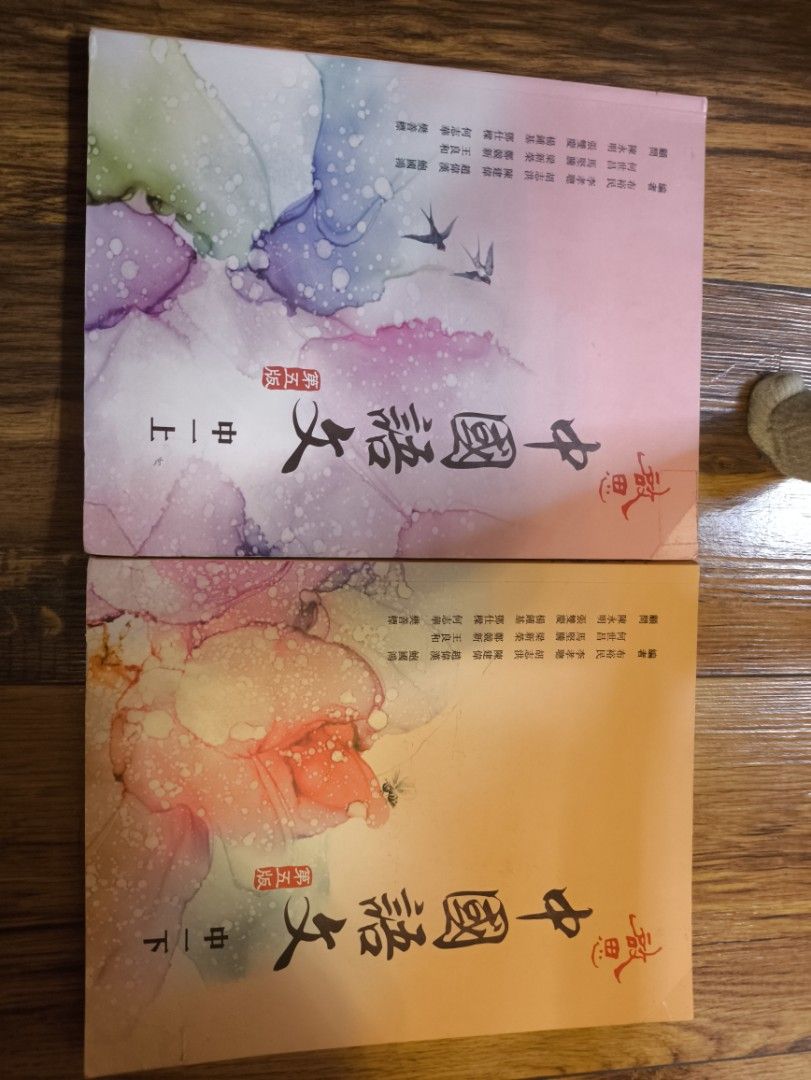 啟思
中國語文
第五版
中一上
顧問 編者
陳永明 何世昌 布裕民
張雙慶 馬堅騰 李孝聰
楊鍾基 梁新榮 胡志洪
鄧仕樑 鄭競新 陳建偉
何志華 王良和 趙偉漢
樊善標 鮑國鴻
啟思
中國語文
第五版
中一下
顧問 編者
陳永明 何世昌 布裕民
張雙慶 馬堅騰 李孝聰
楊鍾基 梁新榮 胡志洪
鄧仕樑 鄭競新 陳建偉
何志華 王良和 趙偉漢
樊善標 鮑國鴻